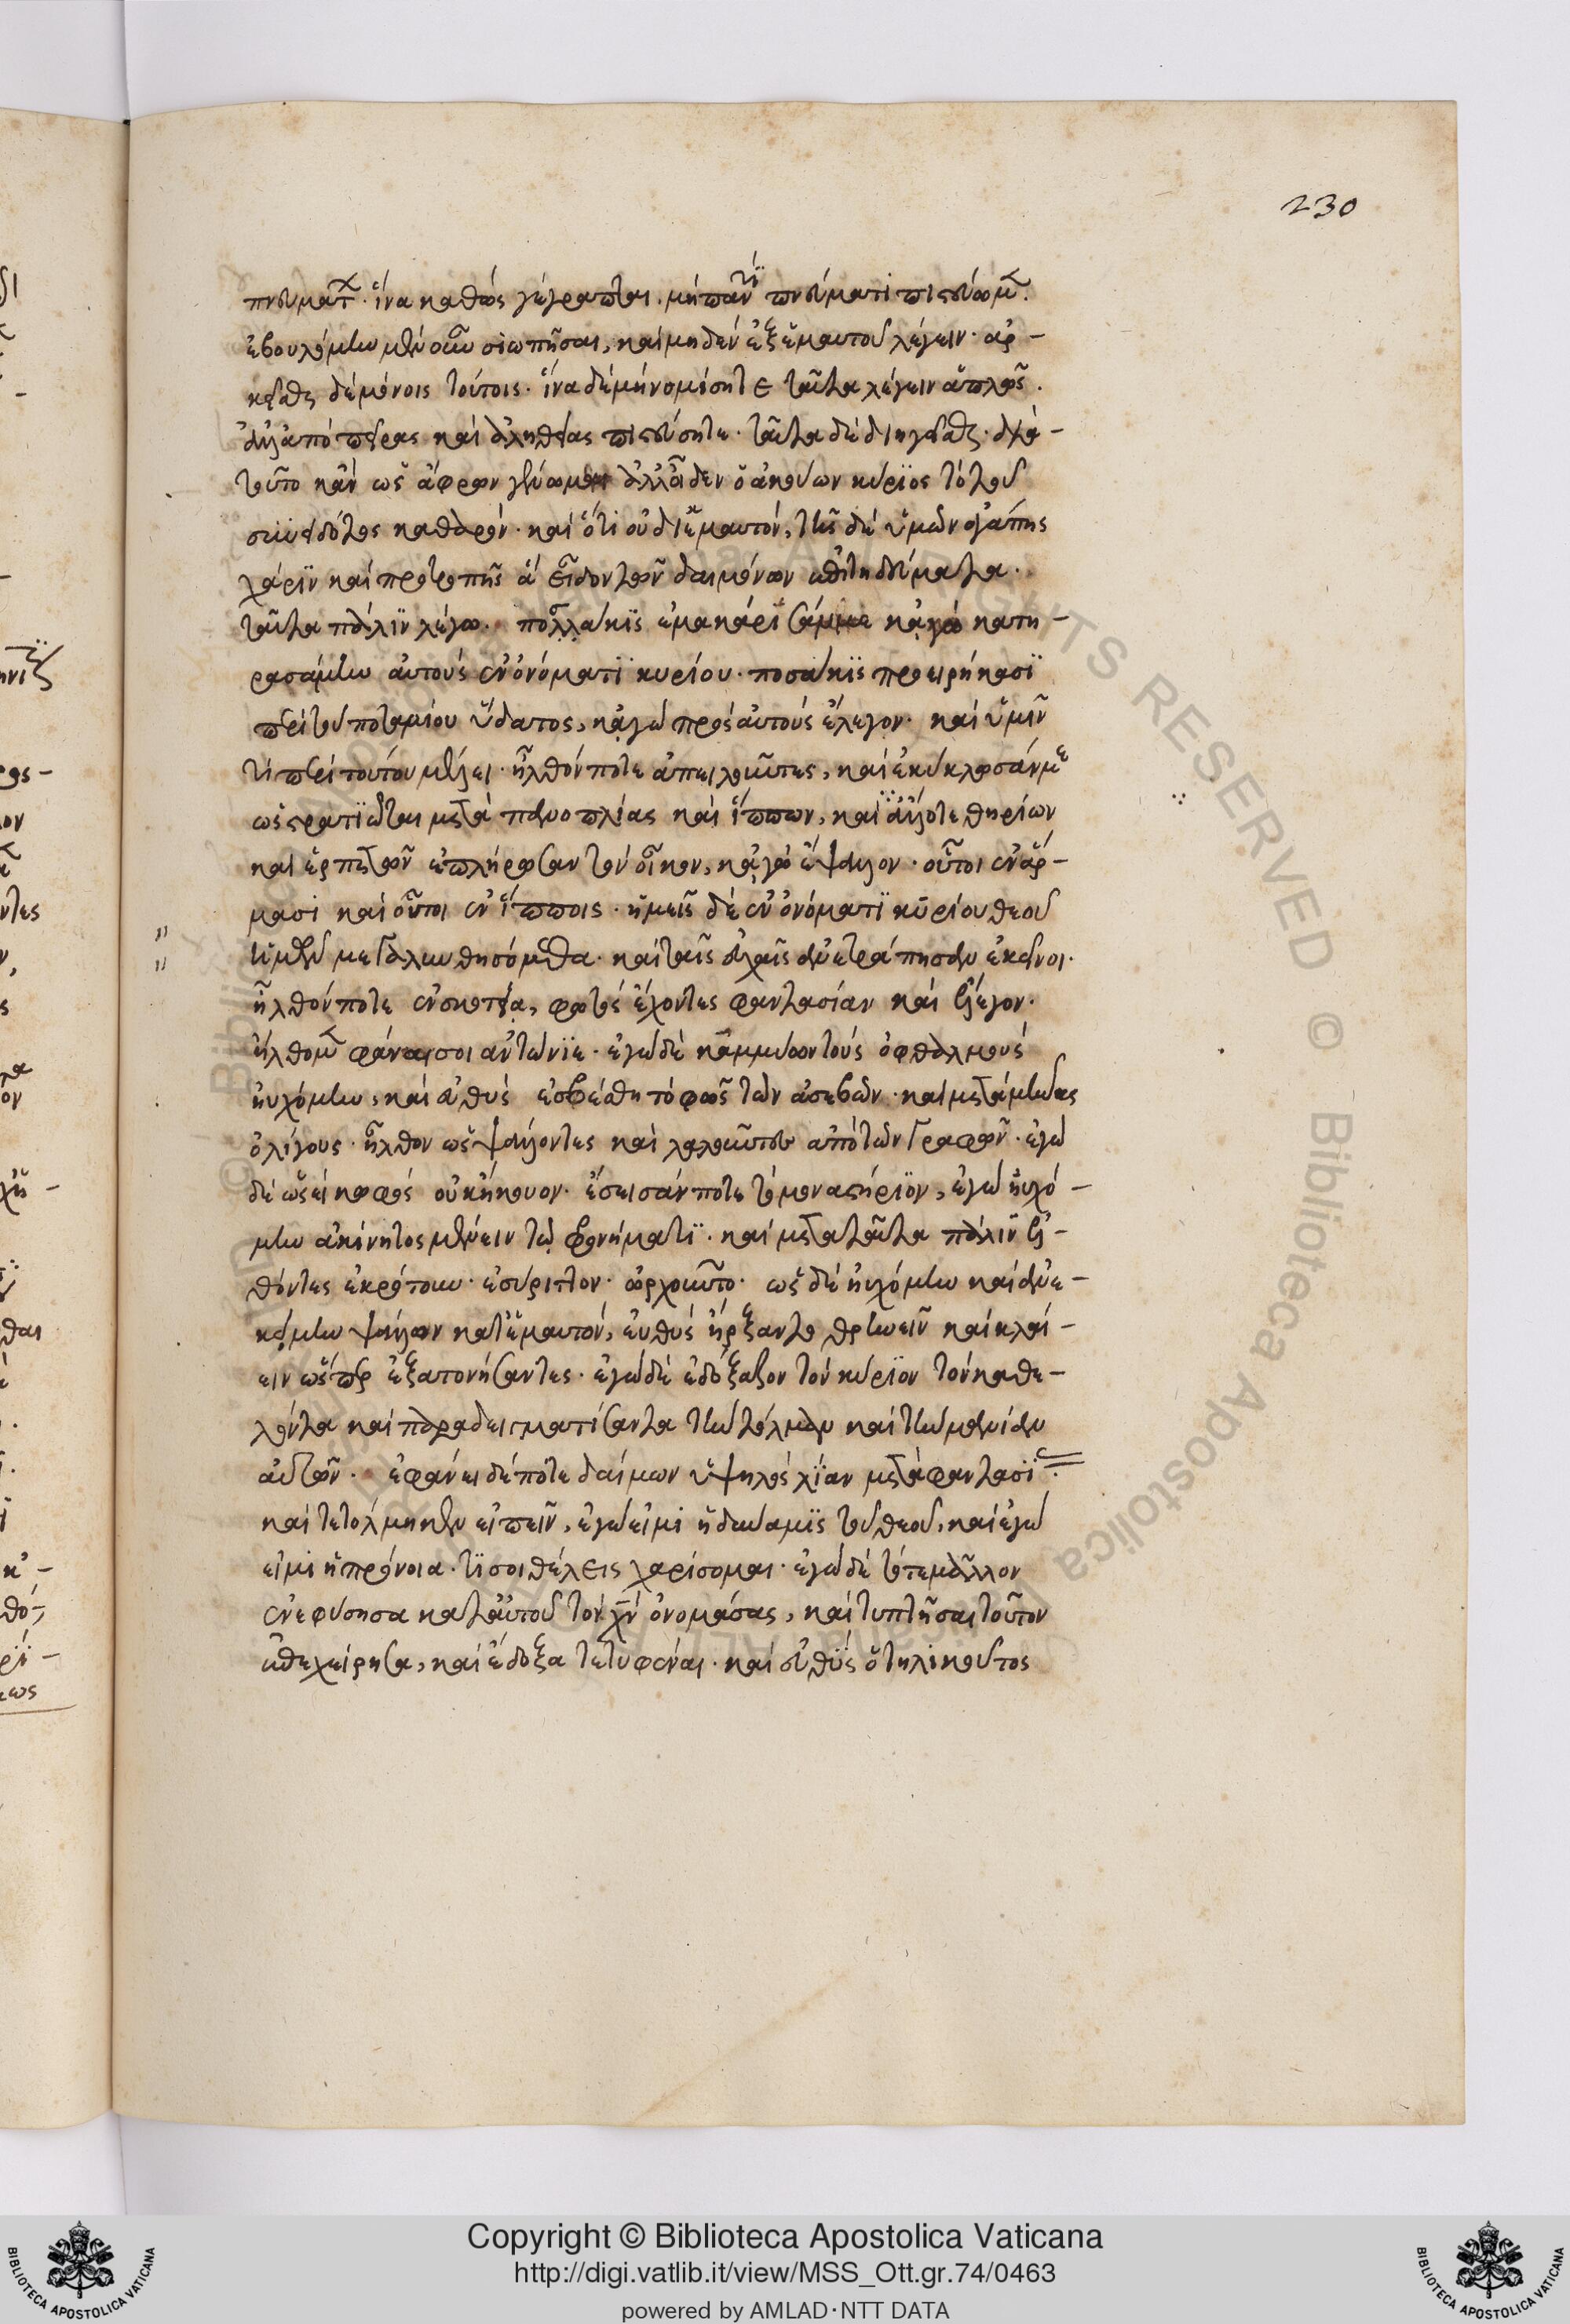 230
πνευμάτ(ων)· ἵνα καθὼς γέγραπται. μὴ παντὶ πνεύματι πιστεύωμ(εν).
ἐβουλόμην μὲν οὖν σιωπῆσαι, καὶ μηδὲν ἐξ ἐμαυτοῦ λέγειν· ἀρ-
κεσθῆ δὲ μόνοις τούτοις. ἵνα δὲ μὴ νομίσητε ταῦτα λέγειν ἁπλῶς.
ἀλλ' ἀπὸ πείρας καὶ ἀληθείας πιστεύσητε. ταῦτα δὲ διηγεῖσθαι· διὰ
τοῦτο κἂν ὡς ἄφρων γένωμαι ἀλλ' οἶδεν ὁ ἀκούων κύριος τὸ τοῦ
συνειδότος καθαρόν. καὶ ὅτι οὐ δι' ἐμαυτόν, τῆς δὲ ὑμῶν ἀγάπης
χάριν καὶ προτροπῆς ἃ εἶδον τῶν δαιμόνων ἐπιτηδεύματα.
ταῦτα πάλιν λέγω. πολλάκις ἐμακάρισάν με κἀγὼ κατη-
ρασάμην αὐτοὺς ἐν ὀνόματι κυρίου. ποσάκις προειρήκασι
περὶ τοῦ ποταμίου ὕδατος, κἀγὼ πρὸς αὐτοὺς ἔλεγον. καὶ ὑμῖν
τί περὶ τούτου μέλει. ἦλθόν ποτε ἀπειλοῦντες, καὶ ἐκύκλωσάν με
ὡς στρατιῶται μετὰ πανοπλίας καὶ ἵππων, καὶ ἄλλοτε θηρίων
καὶ ἑρπετῶν ἐπλήρωσαν τὸν οἶκον, κἀγὼ ἔψαλλον. οὗτοι ἐν ἅρ-
μασι καὶ οὗτοι ἐν ἵπποις. ἡμεῖς δὲ ἐν ὀνόματι κυρίου θεοῦ
ἡμῶν μεγαλυνθησόμεθα. καὶ ταῖς εὐχαῖς ἀνετράπησαν ἐκεῖνοι.
ἦλθόν ποτε ἐν σκοτίᾳ, φωτὸς ἔχοντες φαντασίαν καὶ ἔλεγον.
ἤλθομ(εν) φᾶναι σοι ἀντώνιε. ἐγὼ δὲ καμμύων τοὺς ὀφθαλμοὺς
ηὐχόμην, καὶ εὐθὺς ἐσβέσθη τὸ φῶς τῶν ἀσεβῶν. καὶ μετὰ μῆνας
ὀλίγους. ἦλθον ὡς ψάλλοντες καὶ λαλοῦντες ἀπὸ τῶν γραφῶν. ἐγὼ
δὲ ὡσεὶ κωφὸς οὐκ ἤκουον. ἔσεισάν ποτε τὸ μοναστήριον, ἐγὼ ηὐχό-
μην ἀκίνητος μένειν τῷ φρονήματι. καὶ μετὰ ταῦτα πάλιν ἐλ-
θόντες ἐκρότουν. ἐσύριττον. ὠρχοῦντο. ὡς δὲ ηὐχόμην καὶ ἀνε-
κείμην ψάλλων κατ' ἐμαυτόν, εὐθὺς ἤρξαντο θρηνεῖν καὶ κλαί-
ειν ὥσπερ ἐξατονήσαντες. ἐγὼ δὲ ἐδόξαζον τὸν κύριον τὸν καθε-
λόντα καὶ παραδειγματίσαντα τὴν τόλμαν καὶ τὴν μανίαν
αὐτῶν. ἐφάνη δέ ποτε δαίμων ὑψηλὸς λίαν μετὰ φαντασί(ας).
καὶ τετόλμηκεν εἰπεῖν, ἐγώ εἰμι ἡ δύναμις τοῦ θεοῦ, καὶ ἐγώ
εἰμι ἡ πρόνοια. τί σοι θέλεις χαρίσομαι. ἐγὼ δὲ τότε μᾶλλον
ἐνεφύσησα κατ' αὐτοῦ τὸν χν ὀνομάσας, καὶ τυπτῆσαι τοῦτον
ἐπεχείρησα, καὶ ἔδοξα τετυφέναι. καὶ εὐθὺς ὁ τηλικοῦτος
Copyright © Biblioteca Apostolica Vaticana
http://digi.vatlib.it/view/MSS_Ott.gr.74/0463
powered by AMLAD·NTT DATA